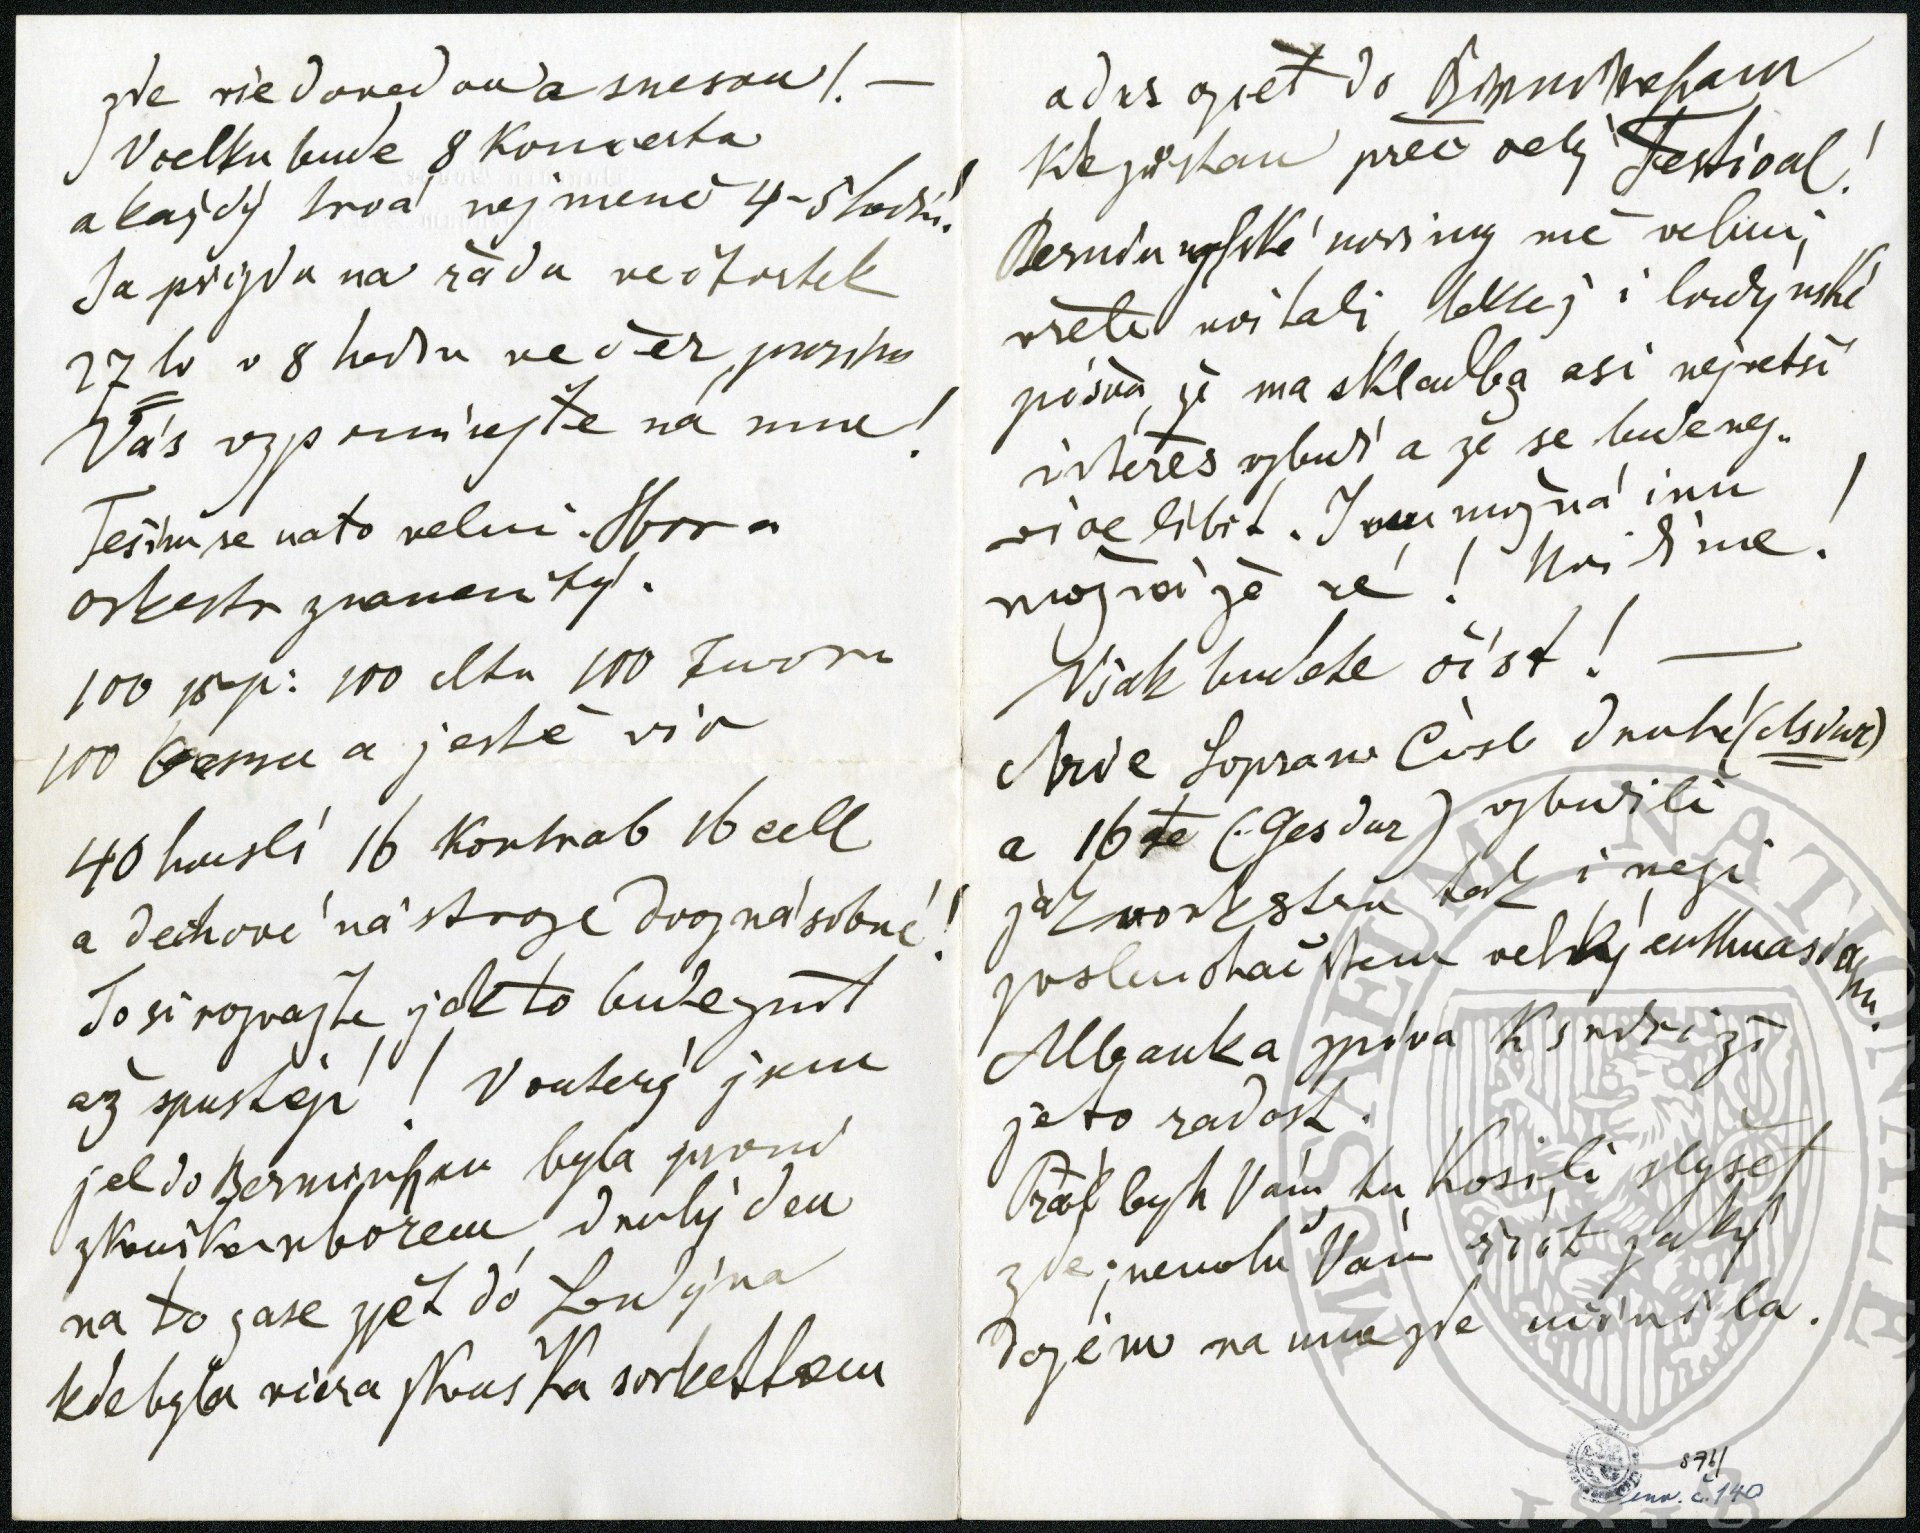 zde vše dovedou a snesou! —
V celku bude 8 Koncertů
a každý trvá nejméně 4-5 hodin!
Ja přijdu na řadu ve čtvrtek
27ho v 8 hodin večer, prosím
Vás vzpomínejte na mne!
Těším se na to velmi. Sbor a
orkestr znamenitý.
100 sop: 100 altu 100 Tenoru
100 bassu a ještě víc
40 houslí 16 Kontrab 16 cell
a dechové nástroje dvojnásobné!
To si považte, jak to bude znít
až spustějí! V outerý jsem
jel do Berminhhau byla první
zkouška sborem, druhý den
na to zase zpět do Londýna
kde byla včera zkouška s orkestrem
a dnes opět do Birminghamu
kde zůstanu přes celý Festival!
Berminghské noviny mě velmi
vřele vítali, taktéž i londýnské
píšou, že má skladba asi největší
interes vzbudí a že se bude nej-
více líbit. I možná inu
možná že ne! Uvidíme!
Však budete číst! —
Arie Soprano Číslo druhé (Asdur)
a 16té (Gesdur) vzbudili
jak v orkestru tak i mezi
posluchačstvem velký enthusiasmus.
Albanka zpívá K srdci že
je to radost.
Přál bych Vám, tu Košili slyšet
zde; nemohu Vám říct jaký
dojem na mne zde učinila.
MUSAEUM NATIONALE
1818
876/
inv. č. 140